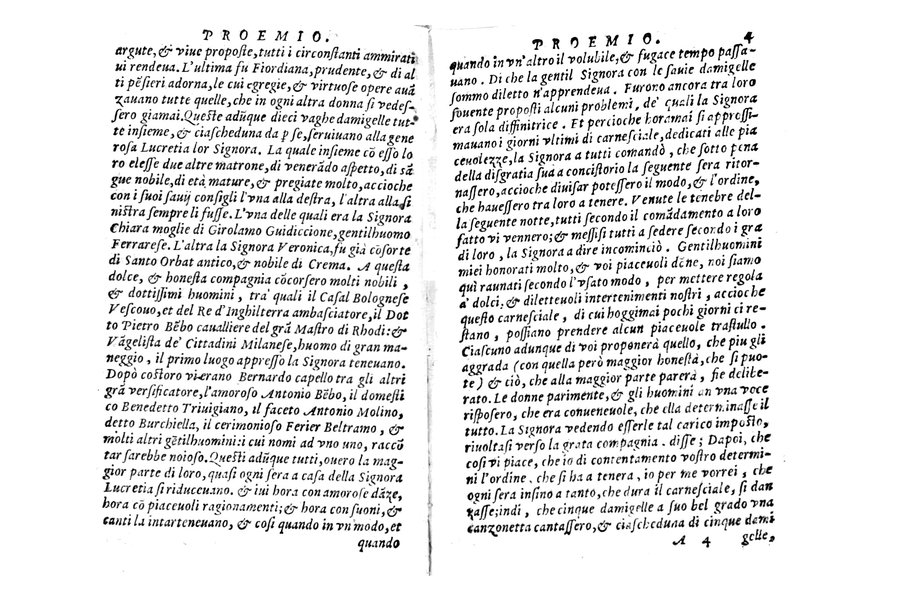 PROEMIO.
argute, & viue proposte, tutti i circonstanti ammirati
ui rendeua. L'ultima fu Fiordiana, prudente, & di al
ti pẽsieri adorna, le cui egregie, & virtuose opere auã
zauano tutte quelle, che in ogni altra donna si vedes-
sero giamai. Queste adũque dieci vaghe damigelle tut-
te insieme, & ciascheduna da p se, seruiuano alla gene
rosa Lucretia lor Signora. La quale insieme cõ esso lo
ro elesse due altre matrone, di venerãdo aspetto, di sã
gue nobile, di età mature, & pregiate molto, accioche
con i suoi sauij consigli l'vna alla destra, l'altra alla si
nistra sempre li fusse. L'vna delle quali era la Signora
Chiara moglie di Girolamo Guidiccione, gentilhuomo
Ferrarese. L'altra la Signora Veronica, fu già cõsorte
di Santo Orbat antico, & nobile di Crema. A questa
dolce, & honesta compagnia cõcorsero molti nobili,
& dottissimi huomini, tra' quali il Casal Bolognese
Vescouo, et del Re d'Inghilterra ambasciatore, il Dot
to Pietro Bẽbo caualliere del grã Mastro di Rhodi: &
Vãgelista de' Cittadini Milanese, huomo di gran ma-
neggio, il primo luogo appresso la Signora teneuano.
Dopò costoro vierano Bernardo capello tra gli altri
grã versificatore, l'amoroso Antonio Bẽbo, il domesti
co Benedetto Triuigiano, il faceto Antonio Molino,
detto Burchiella, il cerimonioso Ferier Beltramo, &
molti altri gẽtilhuomini: i cui nomi ad vno uno, raccõ
tar sarebbe noioso. Questi adũque tutti, ouero la mag-
gior parte di loro, quasi ogni sera a casa della Signora
Lucretia si riduceuano. & iui hora con amorose dãze,
hora cõ piaceuoli ragionamenti; & hora con suoni, &
canti la intarteneuano, & cosi quando in vn modo, et
quando
PROEMIO. 4
quando in vn' altro il volubile, & fugace tempo passa-
uano. Di che la gentil Signora con le sauie damigelle
sommo diletto n'apprendeua. Furono ancora tra loro
souente proposti alcuni problemi, de' quali la Signora
era sola diffinitrice. Et percioche horamai si appressi-
mauano i giorni vltimi di carnesciale, dedicati alle pia
ceuolezze, la Signora a tutti comandò, che sotto pena
della disgratia sua a concistorio la seguente sera ritor-
nassero, accioche diuisar potessero il modo, & l'ordine,
che hauessero tra loro a tenere. Venute le tenebre del-
la seguente notte, tutti secondo il comãdamento a loro
fatto vi vennero; & messisi tutti a sedere secondo i gra
di loro, la Signora a dire incominciò. Gentilhuomini
miei honorati molto, & voi piaceuoi dõne, noi siamo
quì raunati secondo l'vsato modo, per mettere regola
a' dolci, & diletteuoli intertenimenti nostri, accioche
questo carnesciale, di cui hoggimai pochi giorni ci re-
stano, possiano prendere alcun piaceuole trastullo.
Ciascuno adunque di voi proponerà quello, che piu gli
aggrada (con quella però maggior honestà, che si puo-
te) & ciò, che alla maggior parte parerà, fie delibe-
rato. Le donne parimente, & gli huomini an vna voce
risposero, che era conueneuole, che ella determinasse il
tutto. La Signora vedendo esserle tal carico imposto,
riuoltasi verso la grata compagnia. disse; Dapoi, che
cosi vi piace, che io di contentamento vostro determi-
ni l'ordine. che si ha a tenera, io per me vorrei, che
ogni sera insino a tanto, che dura il carnesciale, si dan
zasse; indi, che cinque damigelle a suo bel grado vna
canzonetta cantassero, & ciascheduna di cinque dami
A 4 gelle,